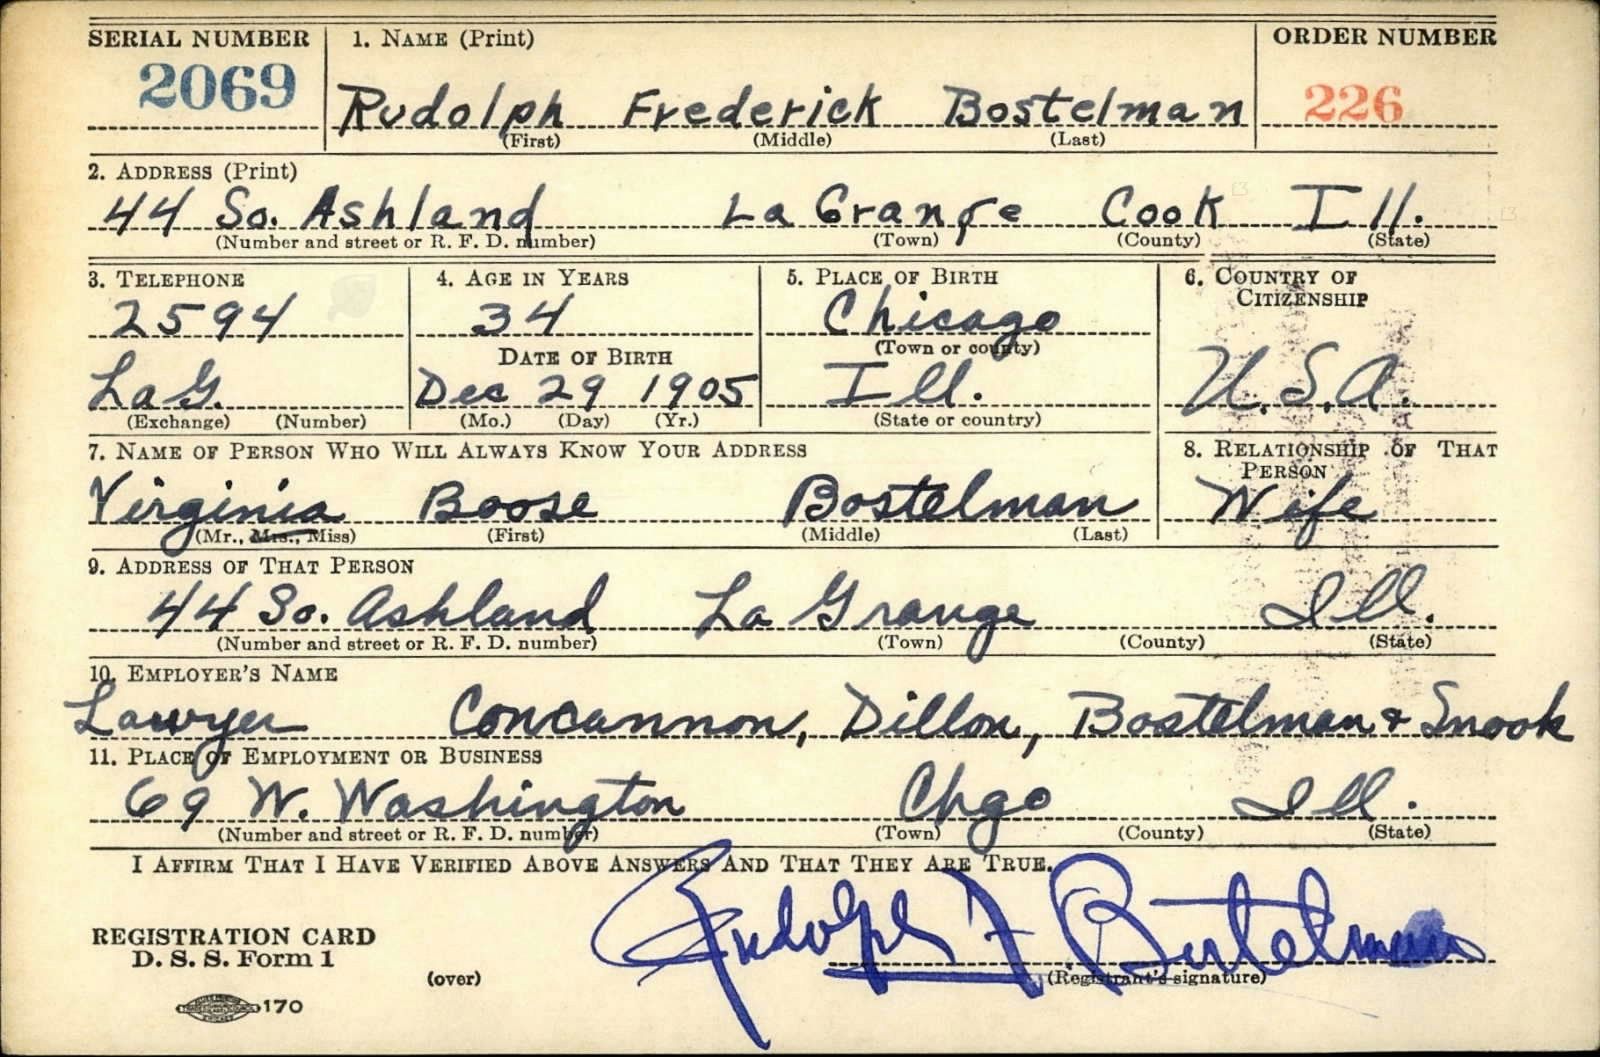 SERIAL NUMBER 1. NAME (Print) ORDER NUMBER
2069 Rudolph Frederick Bostelman 226
(First) (Middle) (Last)
2. ADDRESS (Print)
44 So. Ashland La Grange Cook Ill.
(Number and street or R. F. D. number) (Town) (County) (State)
3. TELEPHONE 4. AGE IN YEARS 5. PLACE OF BIRTH 6. COUNTRY OF CITIZENSHIP
2594 34 Chicago
DATE OF BIRTH (Town or county)
La G. Dec 29 1905 Ill. U.S.A.
(Exchange) (Number) (Mo.) (Day) (Yr.) (State or country)
7. NAME OF PERSON WHO WILL ALWAYS KNOW YOUR ADDRESS 8. RELATIONSHIP OF THAT PERSON
Virginia Boose Bostelman Wife
(Mr., Mrs., Miss) (First) (Middle) (Last)
9. ADDRESS OF THAT PERSON
44 So. Ashland La Grange Ill.
(Number and street or R. F. D. number) (Town) (County) (State)
10. EMPLOYER'S NAME
Lawyer Concannon, Dillon, Bostelman & Snook
11. PLACE OF EMPLOYMENT OR BUSINESS
69 W. Washington Chgo Ill.
(Number and street or R. F. D. number) (Town) (County) (State)
I AFFIRM THAT I HAVE VERIFIED ABOVE ANSWERS AND THAT THEY ARE TRUE.
Rudolph F Bostelman
REGISTRATION CARD
D. S. S. Form 1
(over) (Registrant's signature)
170